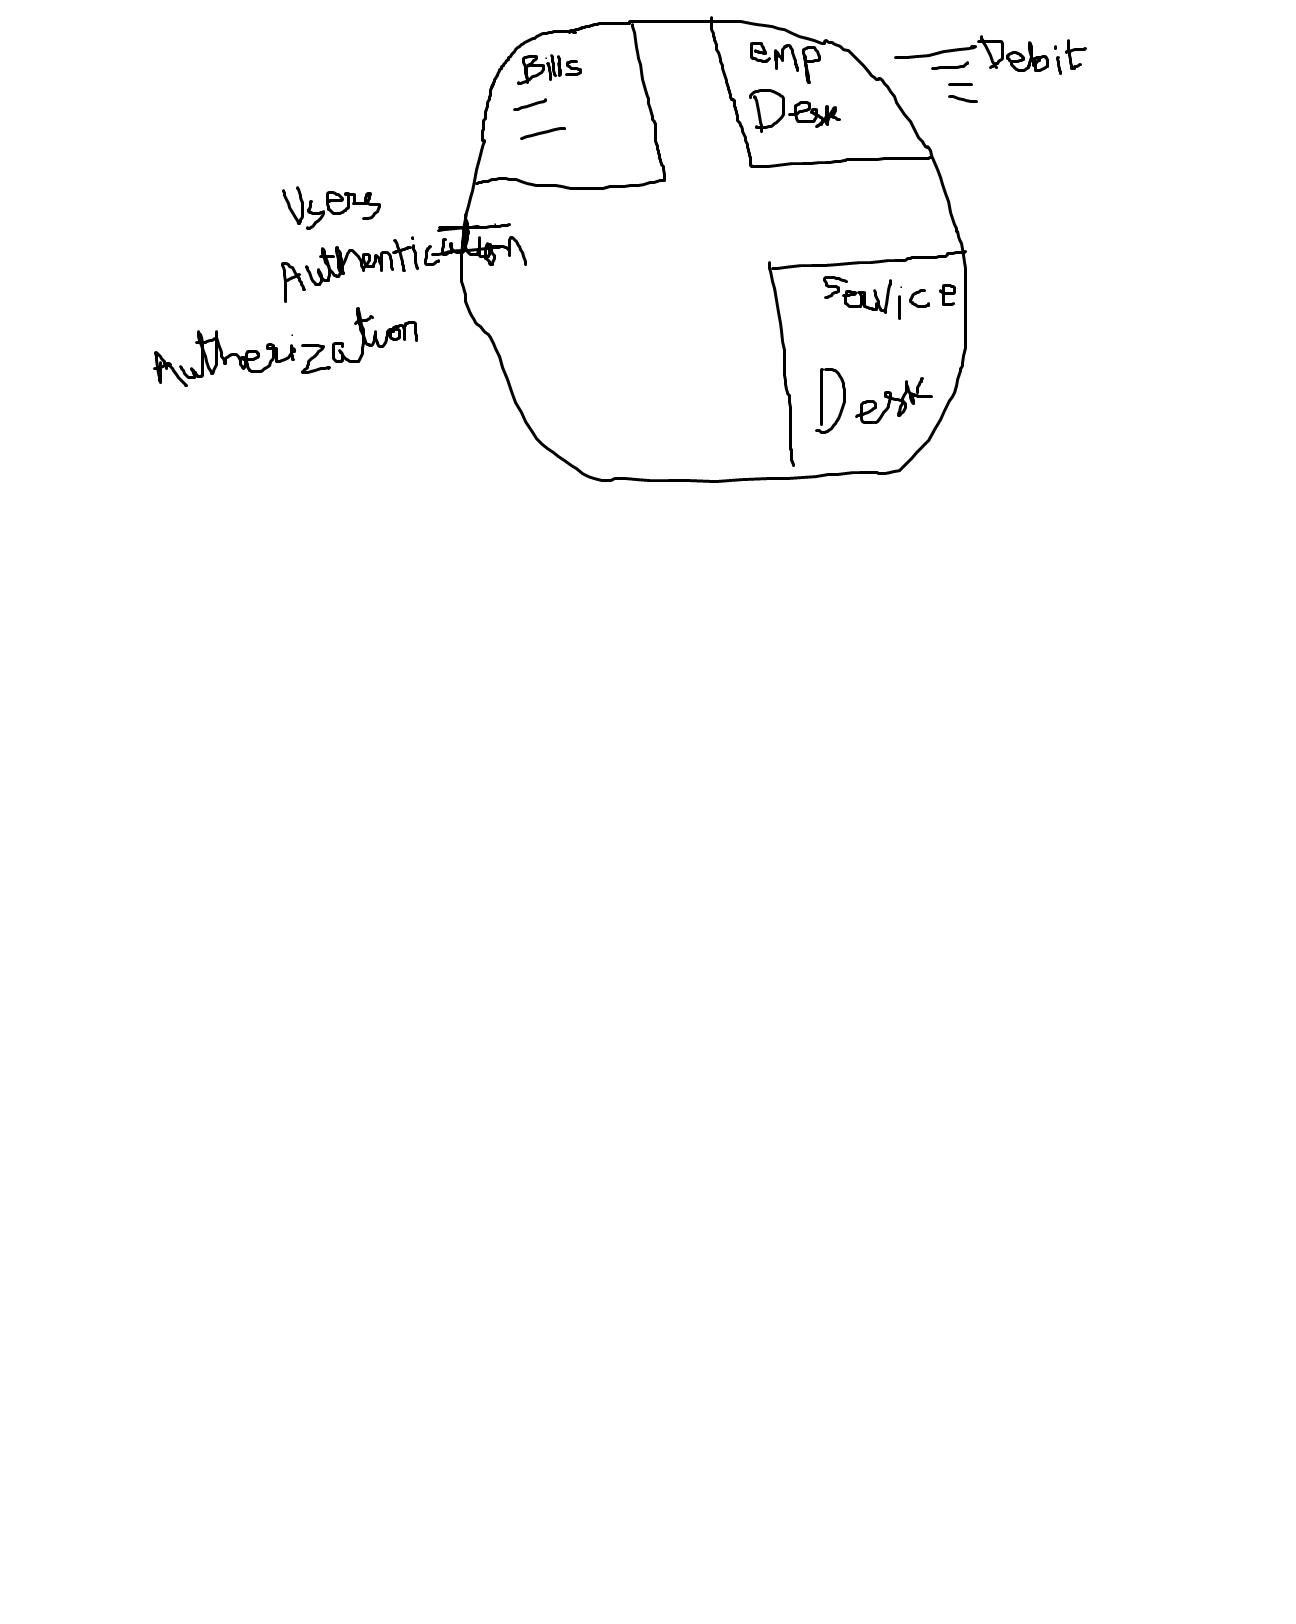 Bills
emp
Desk
Debit
Users
Authentication
Autherization
Service
Desk